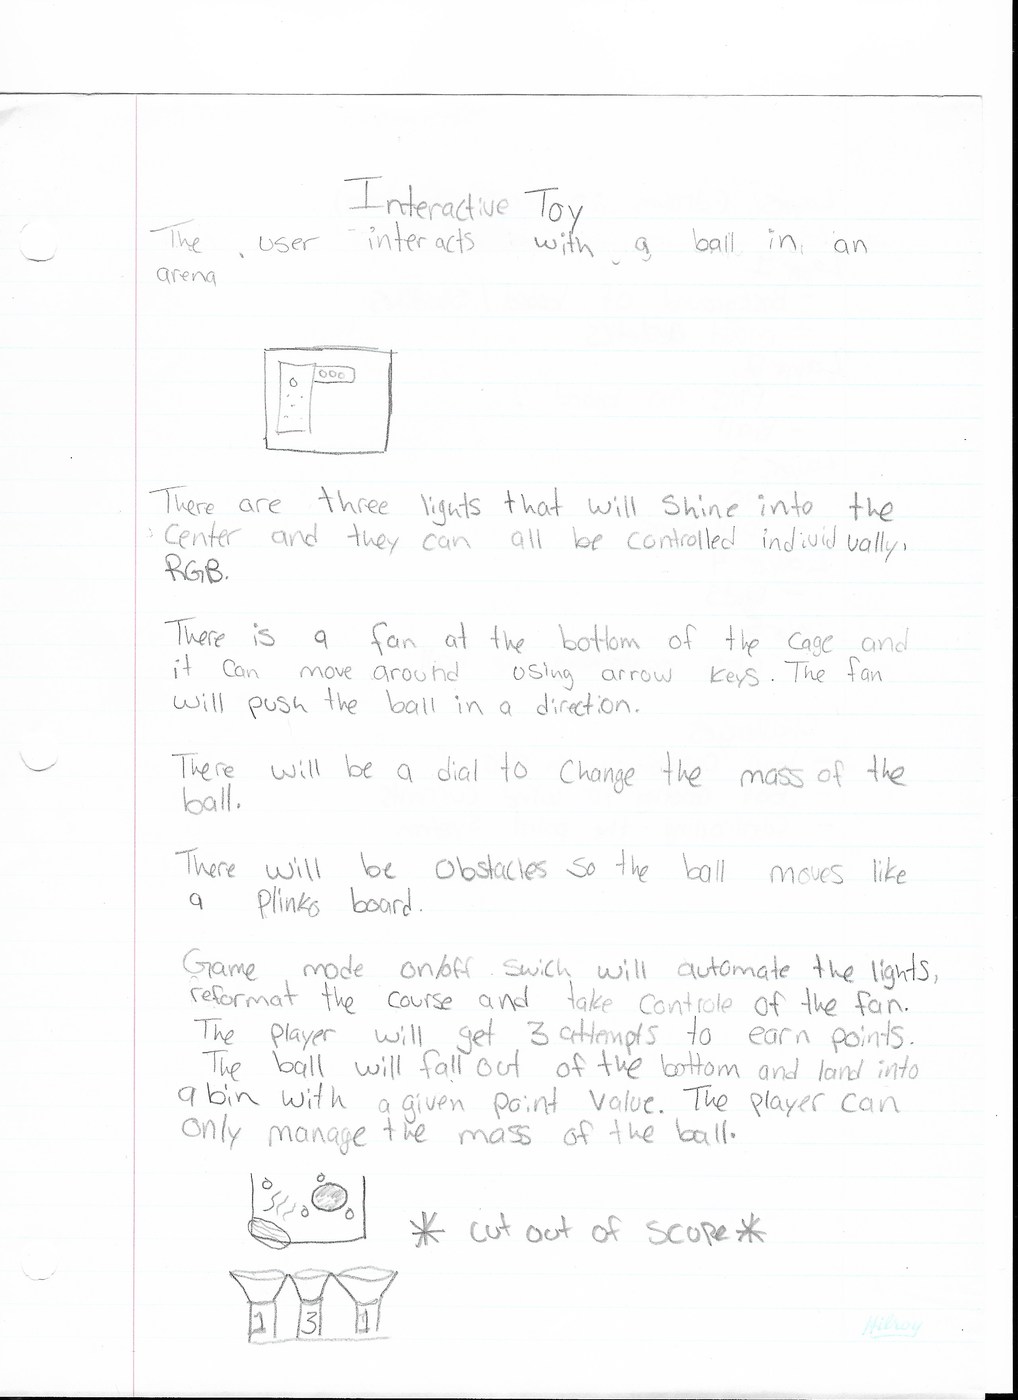 Interactive Toy
The user interacts with a ball in an
arena
There are three lights that will Shine into the
Center and they can all be controlled individually.
RGB.
There is a fan at the bottom of the cage and
it can move around using arrow keys. The fan
will push the ball in a direction.
There will be a dial to Change the mass of the
ball.
There will be Obstacles so the ball moves like
a Plinko board.
Game mode on/off swich will automate the lights,
reformat the course and take controle of the fan.
The player will get 3 attempts to earn points.
The ball will fall out of the bottom and land into
a bin with a given point value. The player can
only manage the mass of the ball.
* cut out of scope *
1 3 1
Hilroy